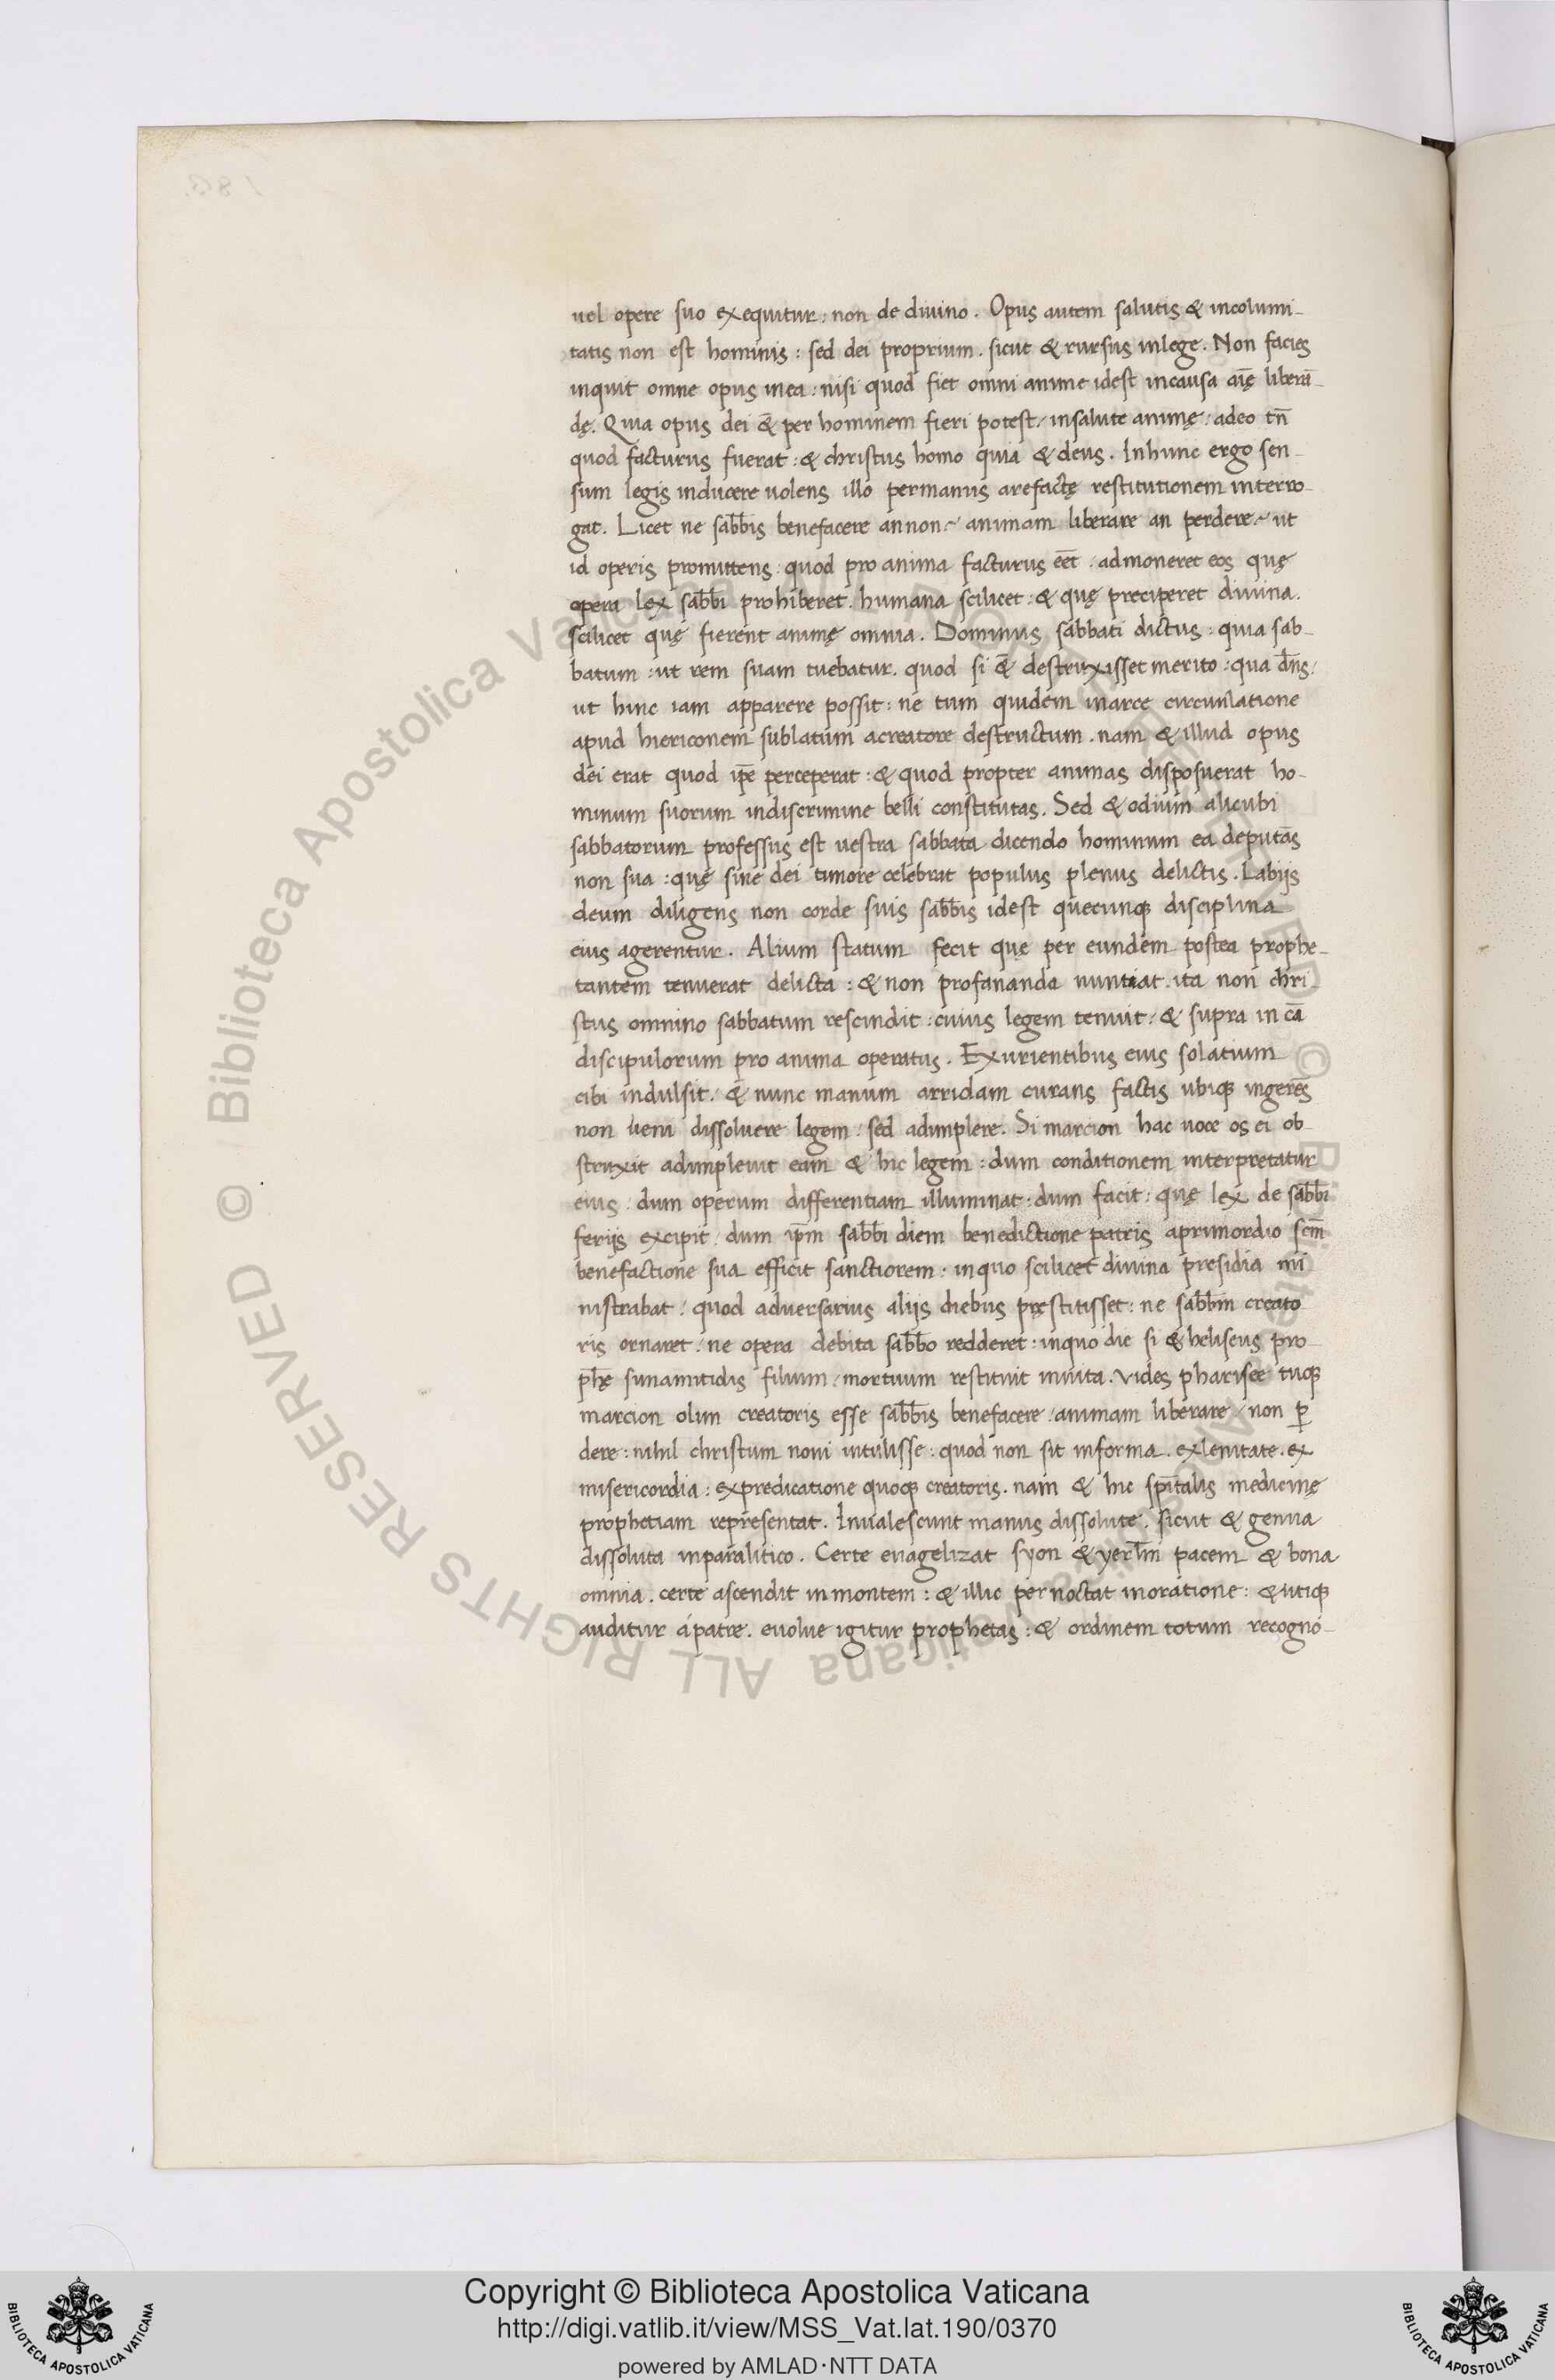 uel opere suo exequitur : non de diuino . Opus autem salutis & incolumi-
tatis non est hominis : sed dei proprium . sicut & rursus inlege . Non facies
inquit omne opus inea : nisi quod fiet omni anime idest incausa aīę liberā-
dę . Quia opus dei & per hominem fieri potest / insalute animę / adeo tn̄
quod facturus fuerat : & christus homo quia & deus . Inhunc ergo sen-
sum legis inducere uolens illo permanus arefactę restitutionem interro-
gat . Licet ne sab̄bis benefacere annon / animam liberare an perdere / ut
id operis promittens : quod pro anima facturus eēt / admoneret eos quę
opera lex sab̄bi prohiberet . humana scilicet : & quę preciperet diuina .
scilicet quę fierent animę omnia . Dominus sabbati dictus : quia sab-
batum : ut rem suam tuebatur . quod si & destruxisset merito : qua dn̄s /
ut hinc iam apparere possit : ne tum quidem inarce circunlatione
apud hiericonem sublatum acreatore destructum . nam & illud opus
dei erat quod ip̄e perceperat : & quod propter animas disposuerat ho-
minum suorum indiscrimine belli constitutas . Sed & odium alicubi
sabbatorum professus est uestra sabbata dicendo hominum ea deputās
non sua : quę sine dei timore celebrat populus plenus delictis . Labijs
deum diligens non corde suis sab̄bis idest quecunqꝫ disciplina
eius agerentur . Alium statum fecit quę per eundem postea prophe-
tantem tenuerat delicta : & non profananda nuntiat . ita non chri-
stus omnino sabbatum rescindit : cuius legem tenuit / & supra in cā
discipulorum pro anima operatus . Exurientibus eius solatium
cibi indulsit / & nunc manum arridam curans factis ubiqꝫ ingerēs
non ueni dissoluere legem / sed adimplere . Si marcion hac uoce os ei ob-
struxit adimpleuit eam & hic legem : dum conditionem interpretatur
eius / dum operum differentiam illuminat : dum facit : quę lex de sab̄bi
ferijs excipit / dum ip̄m sab̄bi diem benedictione patris aprimordio scm̄
benefactione sua efficit sanctiorem : inquo scilicet diuina presidia mi
nistrabat / quod aduersarius alijs diebus pręstitisset : ne sab̄bm creato
ris ornaret / ne opera debita sab̄bo redderet : inquo die si & heliseus pro-
ph̄ę sunamitidis filium / mortuum restituit inuita . Vides pharisee tuqꝫ
marcion olim creatoris esse sab̄bis benefacere / animam liberare / non ꝑ
dere : nihil christum noui intulisse : quod non sit informa . exlenitate . ex
misericordia : expredicatione quoqꝫ creatoris . nam & hic spīritalis medicinę
prophetiam representat . Inualescunt manus dissolute . sicut & genua
dissoluta inparalitico . Certe euāgelizat syon & yerl̄m pacem & bona
omnia . certe ascendit in montem : & illic pernoctat inoratione : & utiqꝫ
auditur ápatre . euolue igitur prophetas : & ordinem totum recogno-
Copyright © Biblioteca Apostolica Vaticana
http://digi.vatlib.it/view/MSS_Vat.lat.190/0370
powered by AMLAD·NTT DATA